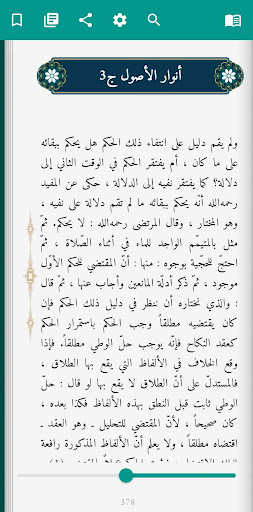 أنوار الأصول ج3
ولم يقم دليل على انتفاء ذلك الحكم هل يحكم ببقائه
على ما كان ، أم يفتقر الحكم في الوقت الثاني إلى
دلالة؟ كما يفتقر نفيه إلى الدلالة ، حكى عن المفيد
رحمه‌الله أنّه يحكم ببقائه ما لم تقم دلالة على نفيه ،
وهو المختار ، وقال المرتضى رحمه‌الله : لا يحكم. ثمّ
مثل بالمتيمّم الواجد للماء في أثناء الصّلاة ، ثمّ
احتجّ للحجّية بوجوه : منها : أنّ المقتضي للحكم الأوّل
موجود ، ثمّ ذكر أدلّة المانعين وأجاب عنها ، ثمّ قال
: والذي نختاره أن ننظر في دليل ذلك الحكم فإن
كان يقتضيه مطلقاً وجب الحكم باستمرار الحكم
كعقد النكاح فإنّه يوجب حلّ الوطي مطلقاً. فإذا
وقع الخلاف في الألفاظ التي يقع بها الطلاق ،
فالمستدلّ على أنّ الطلاق لا يقع بها لو قال : حلّ
الوطي ثابت قبل النطق بهذه الألفاظ فكذا بعده ،
كان صحيحاً ، لأنّ المقتضي للتحليل ـ وهو العقد ـ
اقتضاه مطلقاً ، ولا يعلم أنّ الألفاظ المذكورة رافعة
378